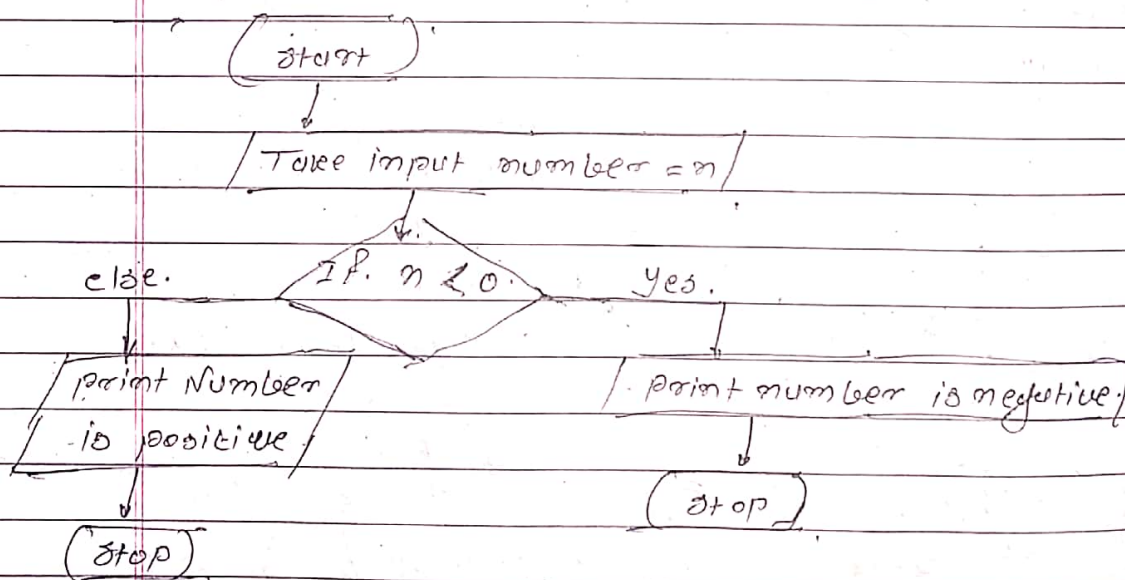 Start
Take input number = n
If. n < 0.
else.
Yes.
print Number
is positive
print number is negative.
Stop
Stop